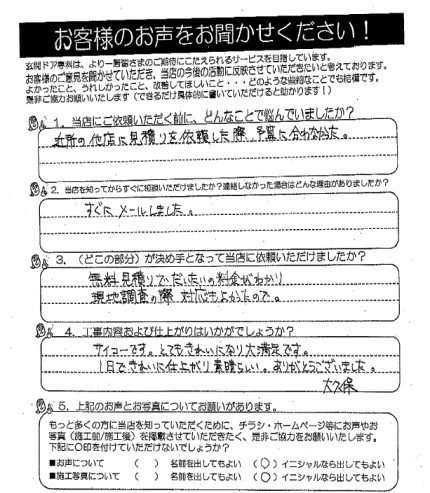 お客様のお声をお聞かせください！
玄関ドア専科は、より一層皆さまのご期待にこたえられるサービスを目指しています。
お客様のご意見を聞かせていただき、当店の今後の活動に反映させていただきたいと考えております。
よかったこと、うれしかったこと、改善してほしいこと・・・どのような些細なことでも結構です。
是非ご協力お願いいたします（できるだけ具体的に書いていただけると助かります！）
1. 当店にご依頼いただく前に、どんなことで悩んでいましたか？
近所の他店に見積りを依頼した際、予算に合わなかった。
2. 当店を知ってからすぐに相談いただけましたか？連絡しなかった場合はどんな理由がありましたか？
すぐにメールしました。
3. （どこの部分）が決め手となって当店に依頼いただけましたか？
無料見積りでだいたいの料金がわかり
現地調査の際 対応もよかったので。
4. 工事内容および仕上がりはいかがでしょうか？
サイコーです。とてもきれいになり大満足です。
1日できれいに仕上がり素晴らしい。ありがとうございました。
大久保
5. 上記のお声とお写真についてお願いがあります。
もっと多くの方に当店を知っていただくために、チラシ・ホームページ等にお声やお
写真（施工前/施工後）を掲載させていただきたく、是非ご協力をお願いいたします。
下記に〇印を付けていただけないでしょうか？
■お声について （ ） 名前を出してもよい （〇）イニシャルなら出してもよい
■施工写真について （ ） 名前を出してもよい （〇）イニシャルなら出してもよい